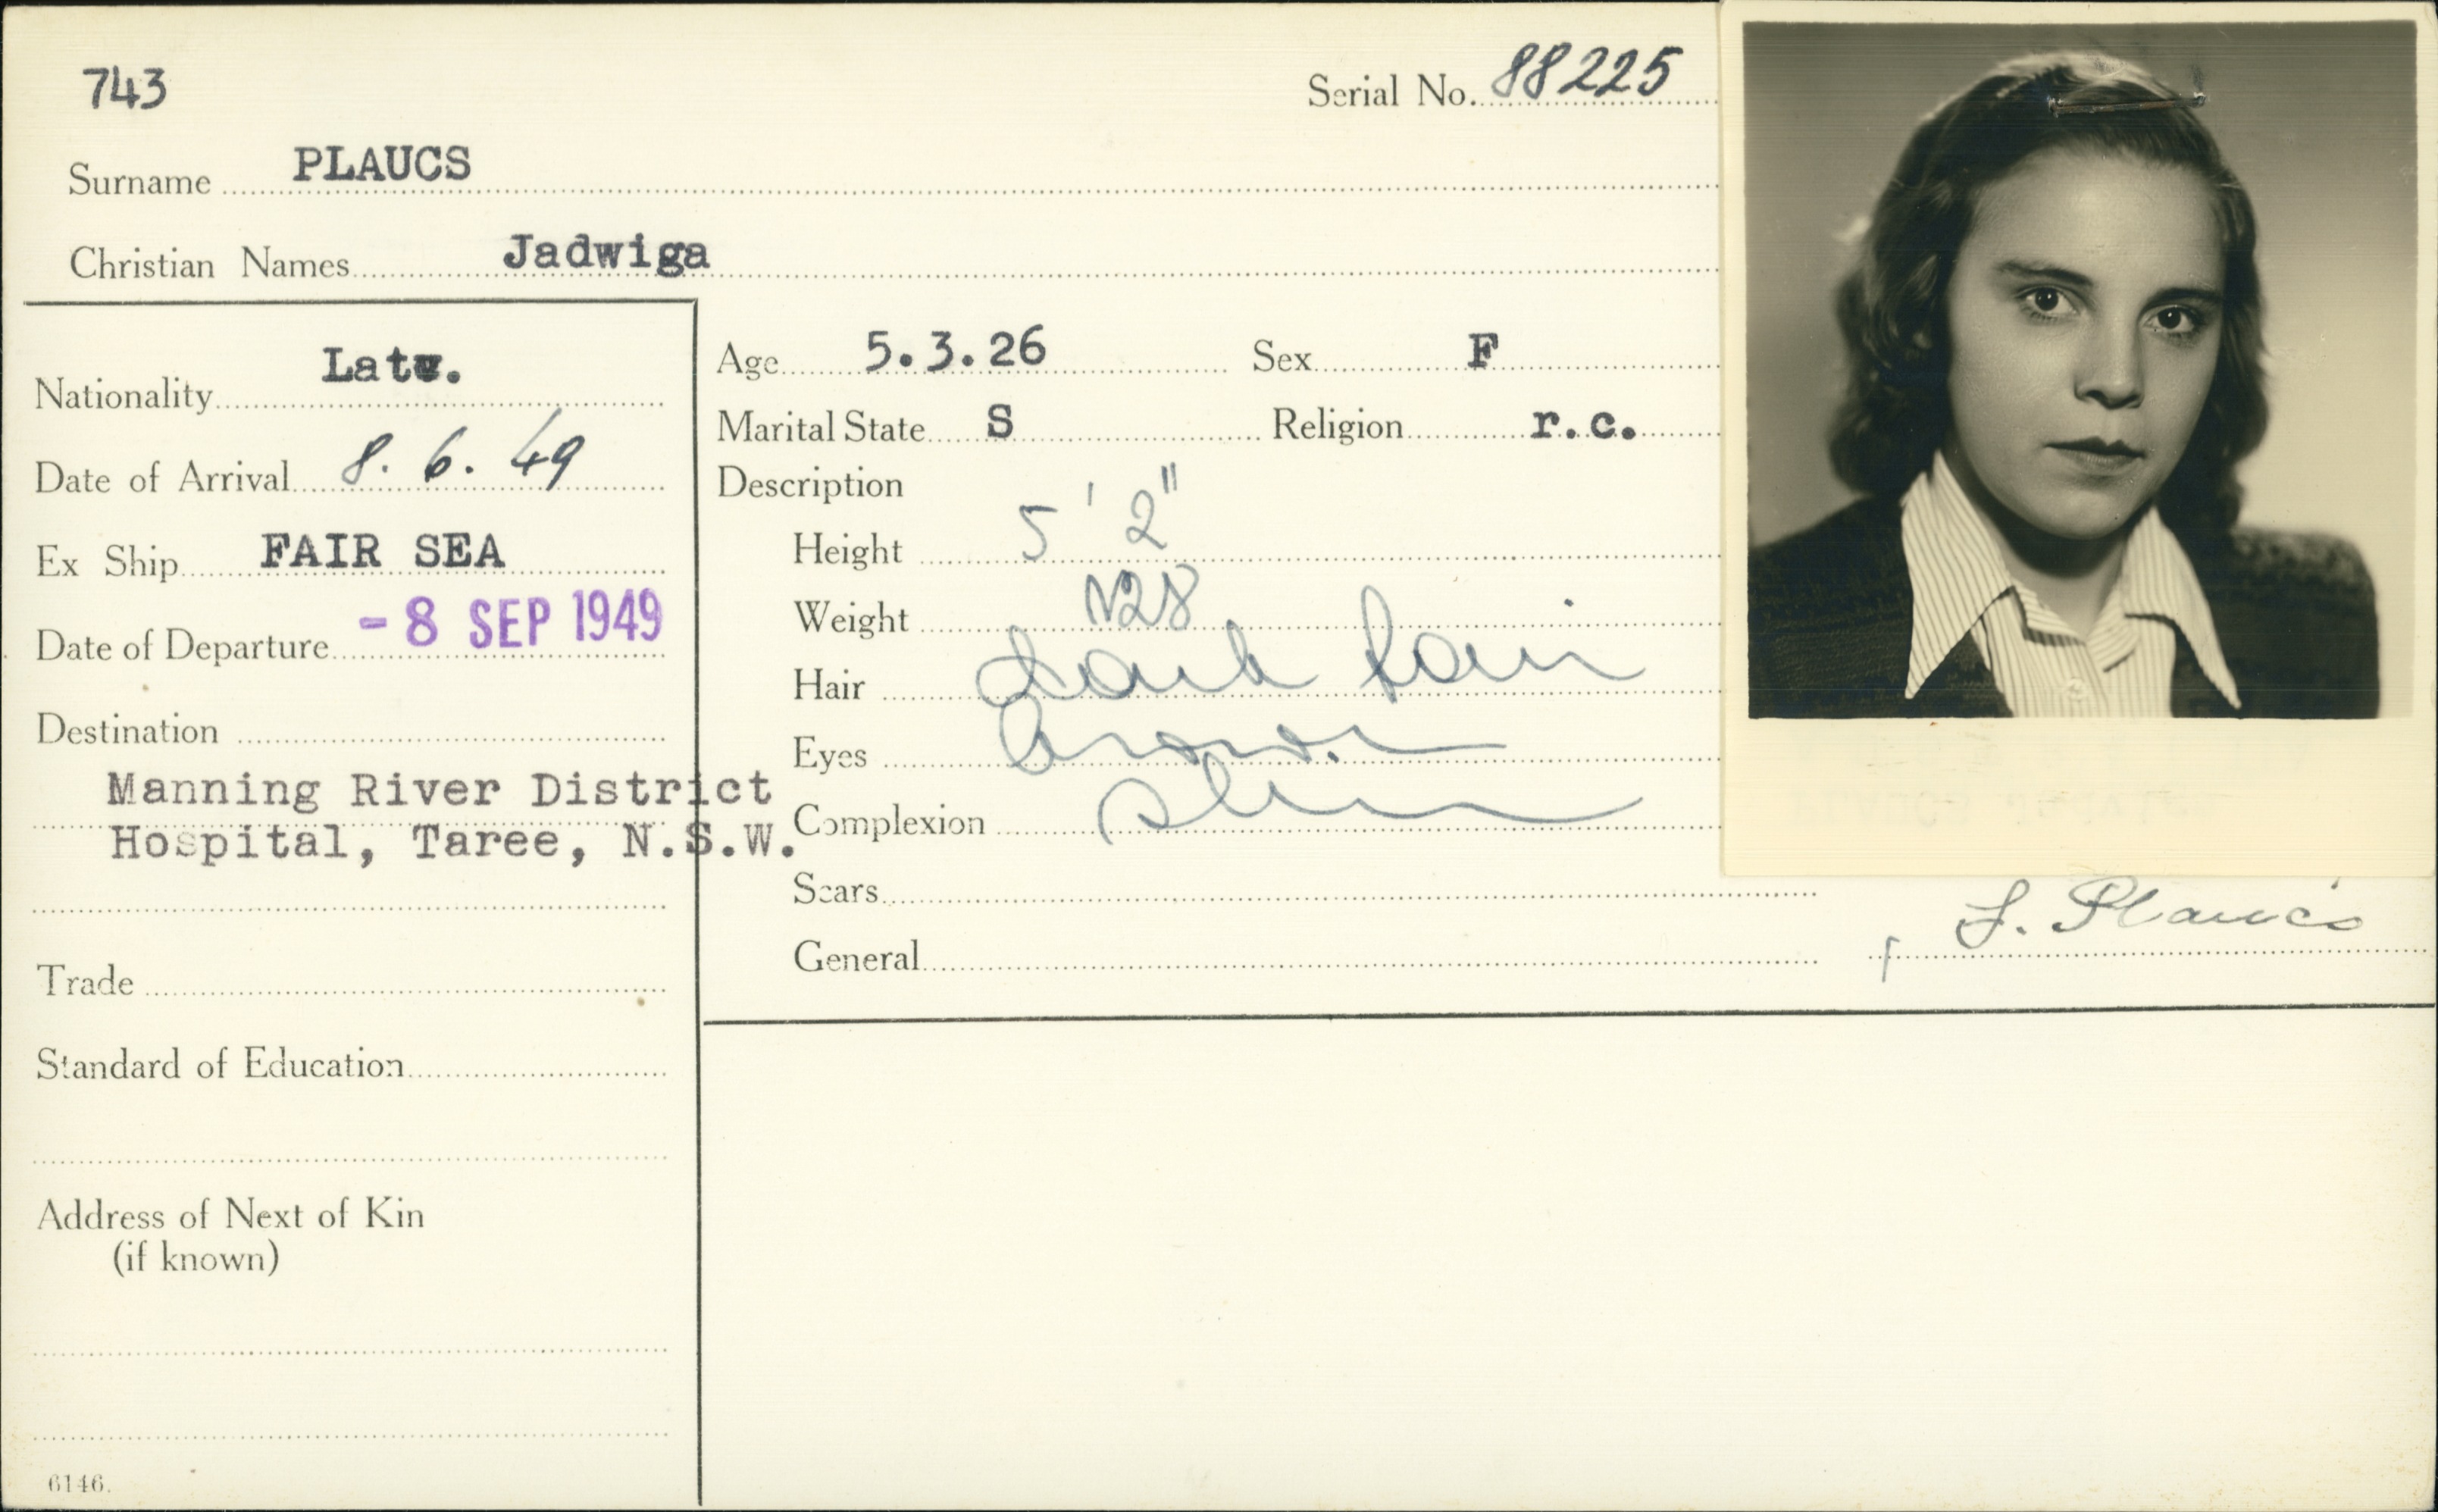 743
Serial No. 88225
Surname PLAUCS
Christian Names Jadwiga
Nationality Latv.
Date of Arrival 8. 6. 49
Ex Ship FAIR SEA
Date of Departure - 8 SEP 1949
Destination
Manning River District
Hospital, Taree, N.S.W.
Trade
Standard of Education
Address of Next of Kin
(if known)
6146.
Age 5.3.26 Sex F
Marital State S Religion r.c.
Description
Height 5' 2"
Weight 128
Hair dark fair
Eyes brown
Complexion
Scars
General
J. Plaucs